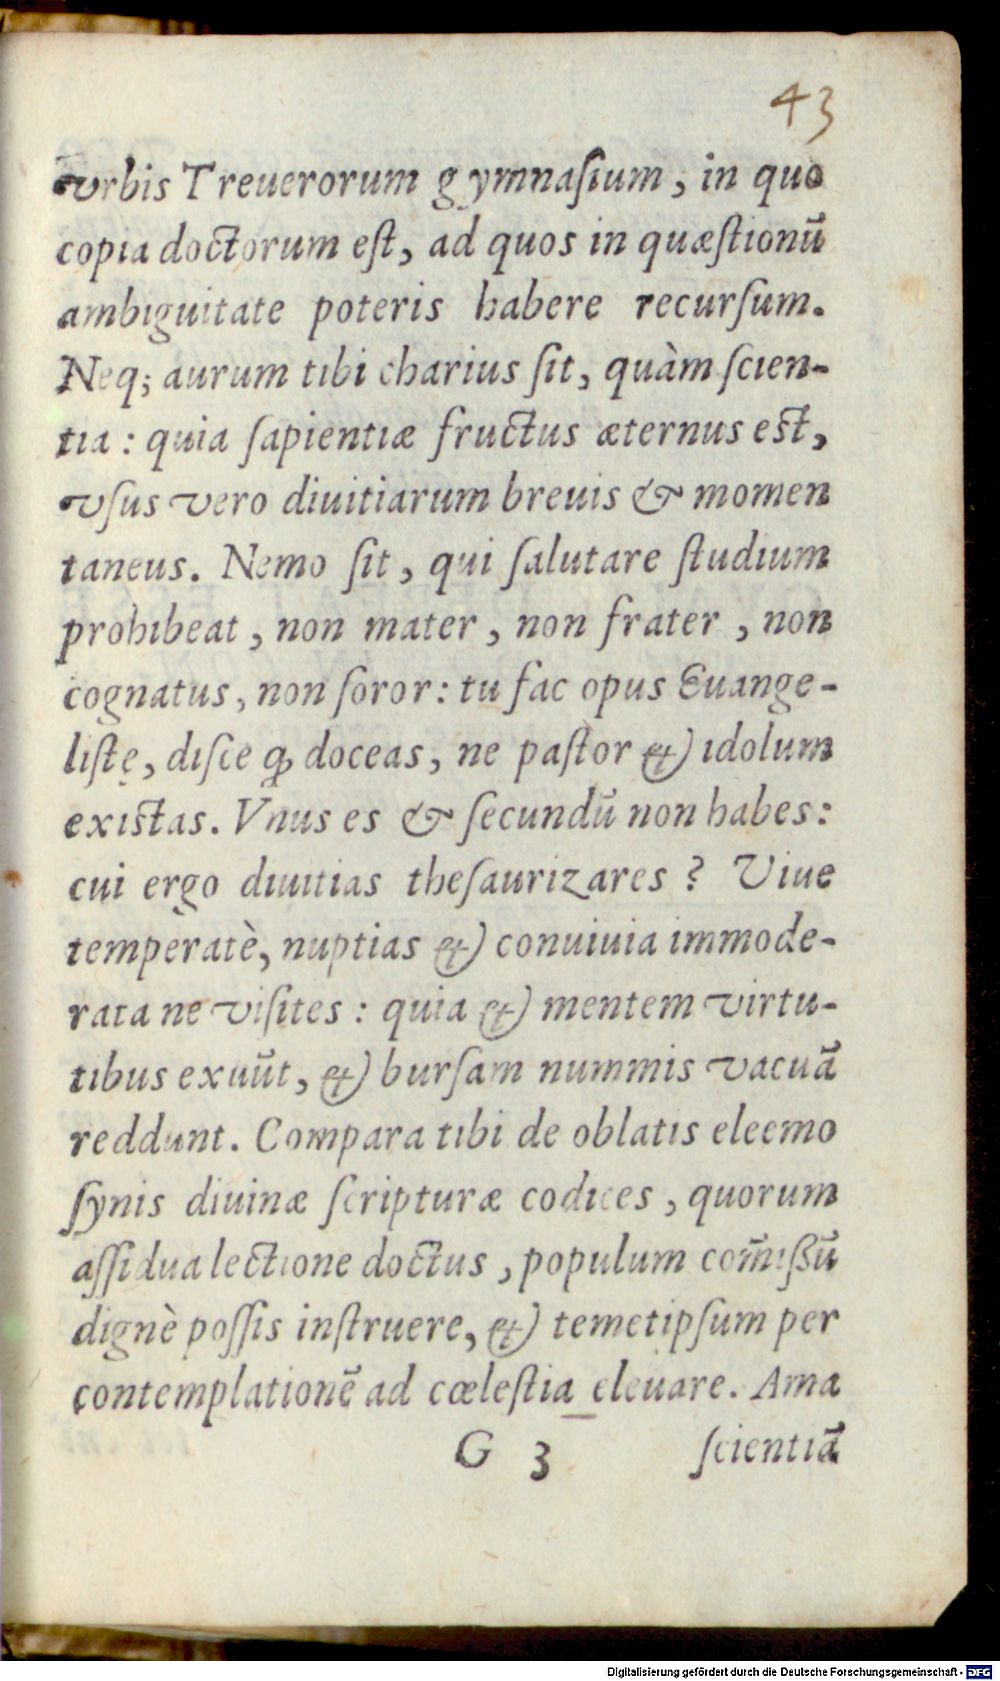 43
vrbis Treuerorum gymnaſium, in quo
copia doctorum eſt, ad quos in quæſtionū
ambiguitate poteris habere recurſum.
Neq; aurum tibi charius ſit, quàm ſcien-
tia: quia ſapientiæ fructus æternus est,
vſus vero diuitiarum breuis & momen
taneus. Nemo ſit, qui ſalutare ſtudium
prohibeat, non mater, non frater, non
cognatus, non ſoror: tu fac opus Euange-
liſtę, diſce qd doceas, ne paſtor & idolum
existas. Vnus es & ſecundū non habes:
cui ergo diuitias theſaurizares? Viue
temperatè, nuptias & conuiuia immode-
rata ne viſites: quia & mentem virtu-
tibus exuūt, & burſam nummis vacuā
reddunt. Compara tibi de oblatis eleemo
ſynis diuinæ ſcripturæ codices, quorum
aſſidua lectione doctus, populum com̄iſſū
dignè poſſis inſtruere, & temetipſum per
contemplationē ad cœleſtia eleuare. Ama
G 3 ſcientiā
Digitalisierung gefördert durch die Deutsche Forschungsgemeinschaft - DFG